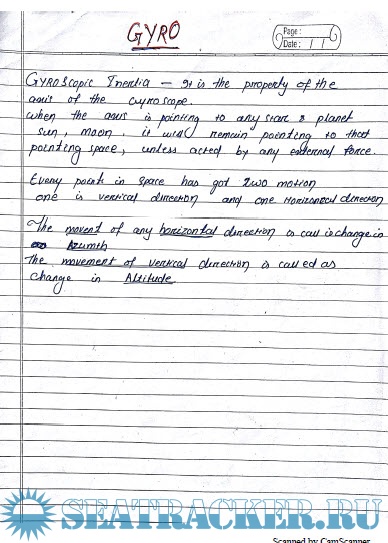 GYRO
Page :
Date : / /
Gyroscopic Inertia – It is the property of the
axis of the Gyroscope.
when the axis is pointing to any star & planet
sun, moon, it will remain pointing to that
pointing space, unless acted by any external force.
Every point in space has got two motion
one is vertical direction and one Horizontal direction
The movent of any horizontal direction is call is change in
Azumth
The movement of vertical direction is called as
change in Altitude
SEATRACKER.RU
Scanned by CamScanner